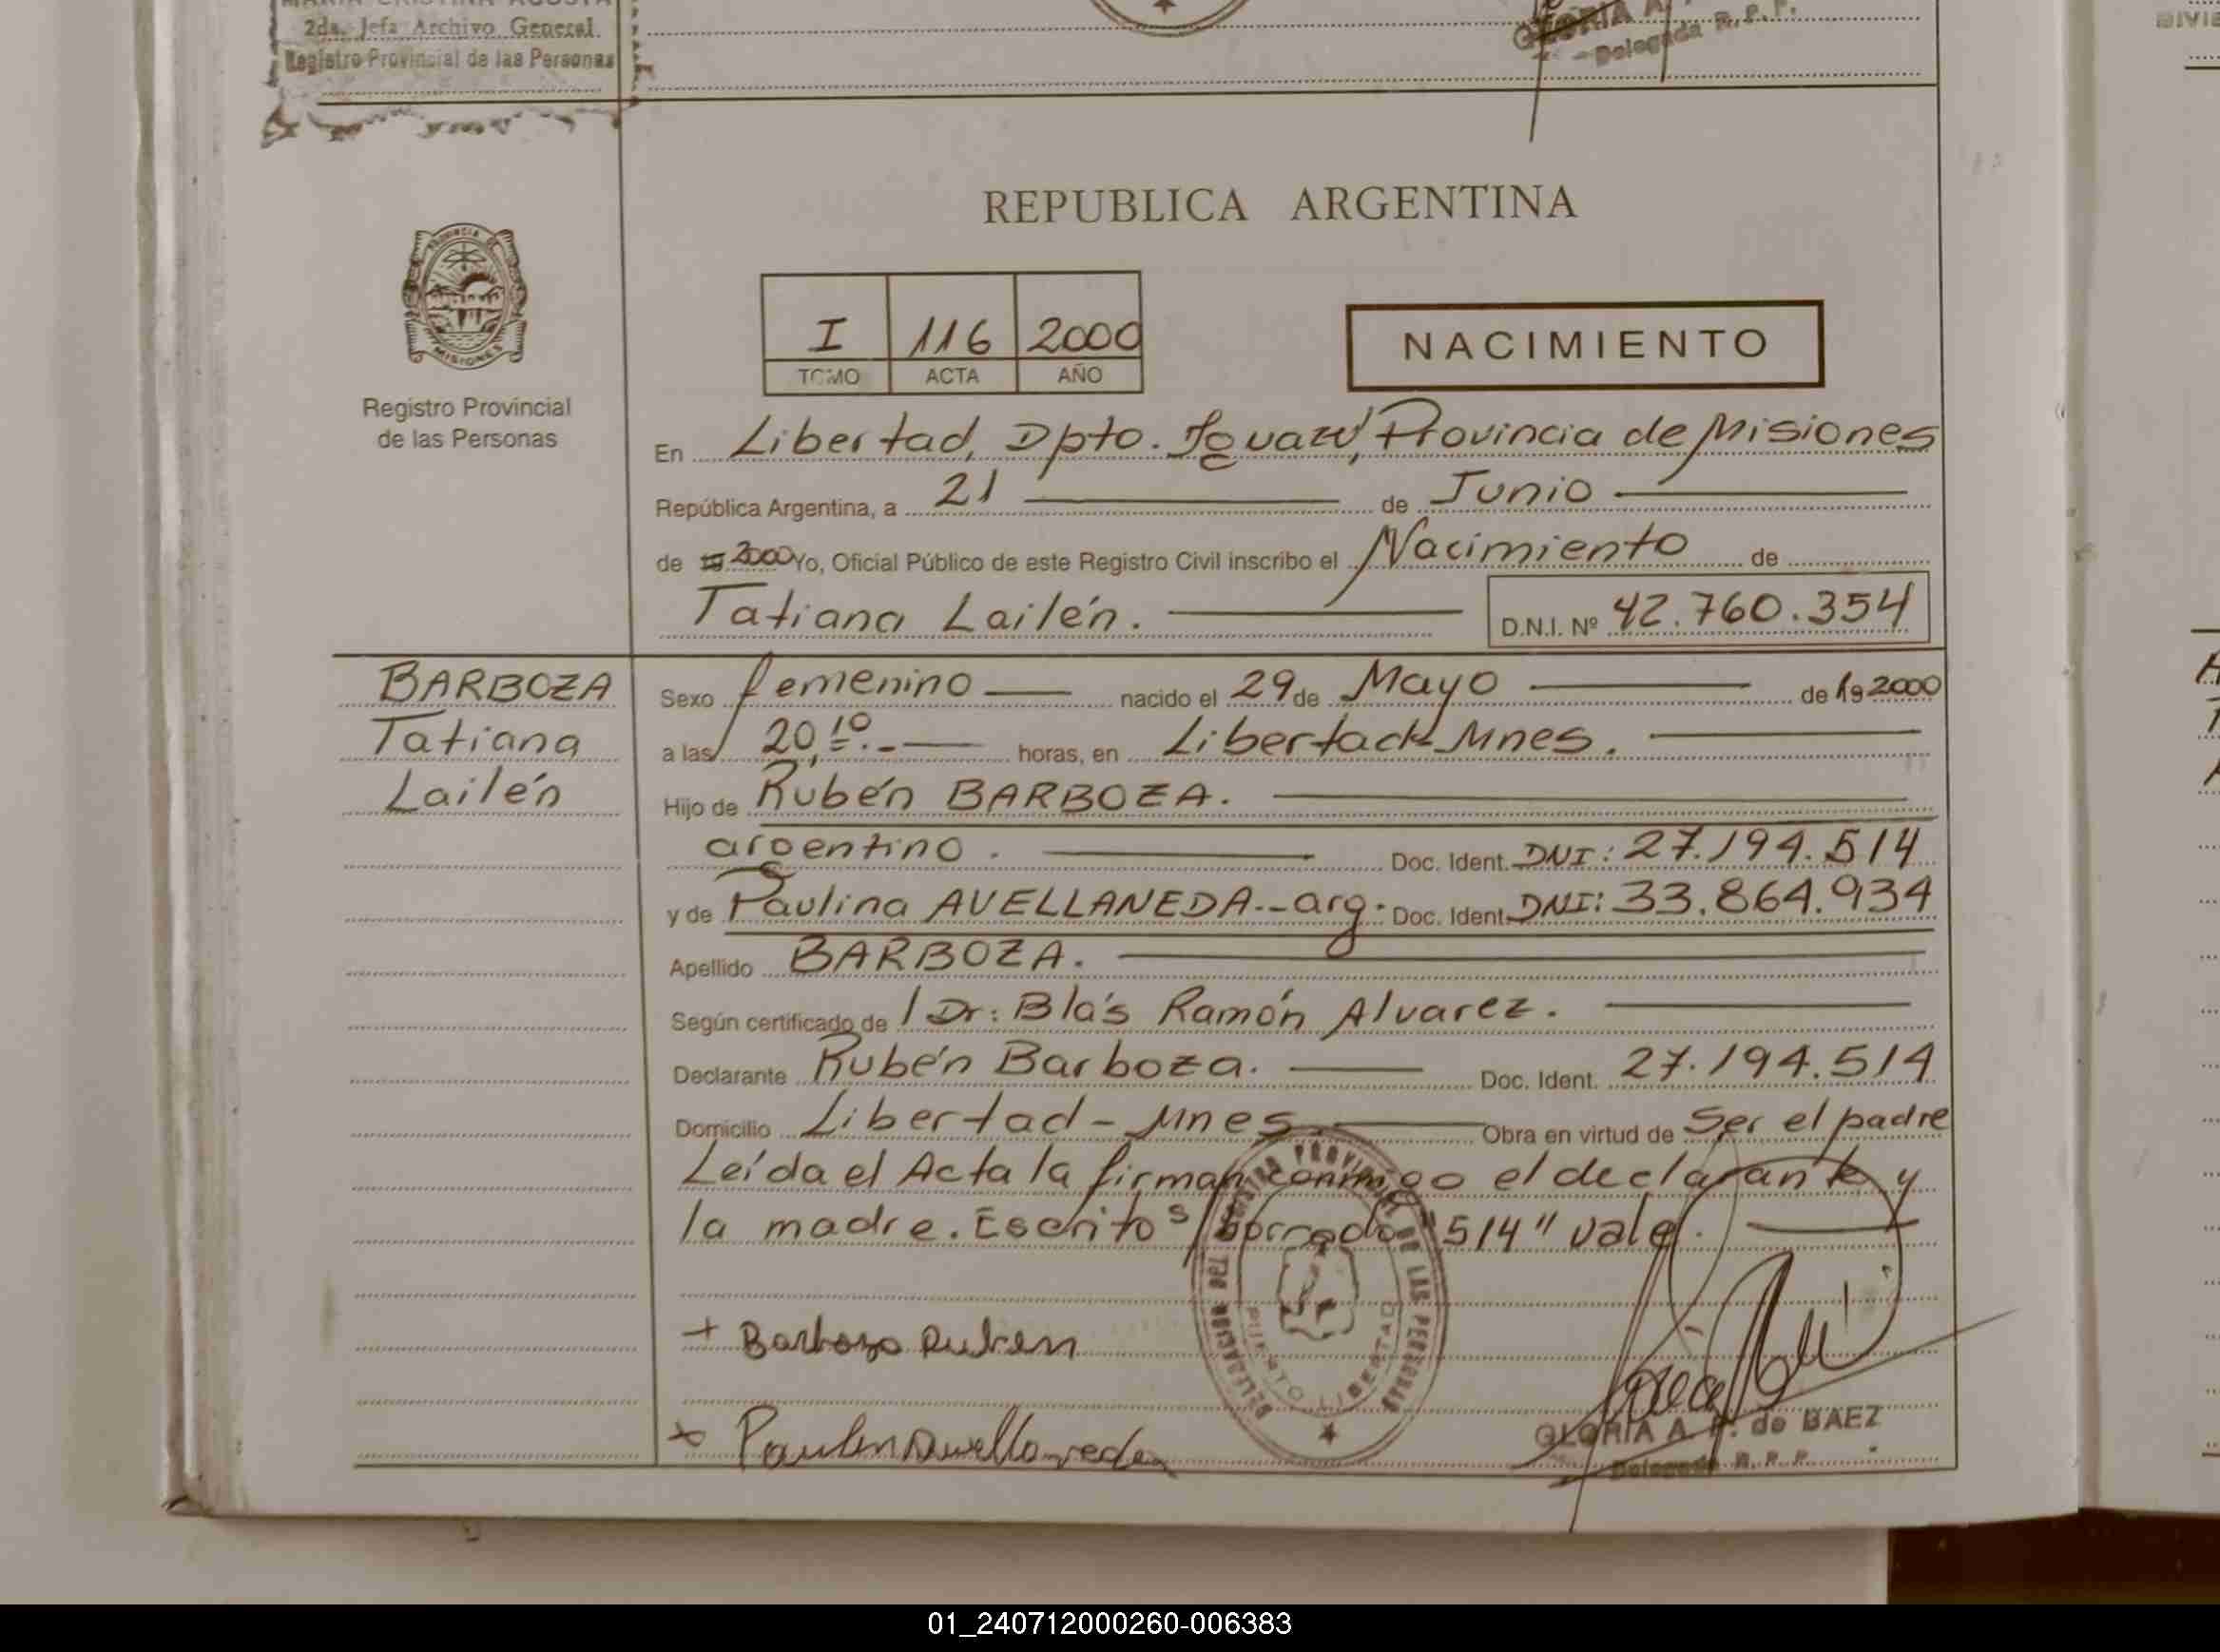 2da. Jefa Archivo General.
Registro Provincial de las Personas
Delegada R. P. P.
PROVINCIA DE
MISIONES
Registro Provincial
de las Personas
REPUBLICA ARGENTINA
I 116 2000
TOMO ACTA AÑO
NACIMIENTO
En Libertad, Dpto. Iguazú, Provincia de Misiones
República Argentina, a 21 de Junio
de 19 2000 Yo, Oficial Público de este Registro Civil inscribo el Nacimiento de
Tatiana Lailén. D.N.I. Nº 42.760.354
BARBOZA
Tatiana
Lailén
Sexo femenino nacido el 29 de Mayo de 19 2000
a las 20,10.- horas, en Libertad-Mnes.
Hijo de Rubén BARBOZA.
argentino. Doc. Ident. DNI: 27.194.514
y de Paulina AVELLANEDA.-arg. Doc. Ident. DNI: 33.864.934
Apellido BARBOZA.
Según certificado de l Dr: Blás Ramón Alvarez.
Declarante Rubén Barboza. Doc. Ident. 27.194.514
Domicilio Libertad-Mnes. Obra en virtud de Ser el padre
Leída el Acta la firman conmigo el declarante y
la madre. Escrito s/borrado "514" vale.
+ Barboza Ruben
DELEGACION DEL REGISTRO PROVINCIAL DE LAS PERSONAS
PUERTO LIBERTAD
GLORIA A. P. de BAEZ
Delegada R. P. P.
01_240712000260-006383